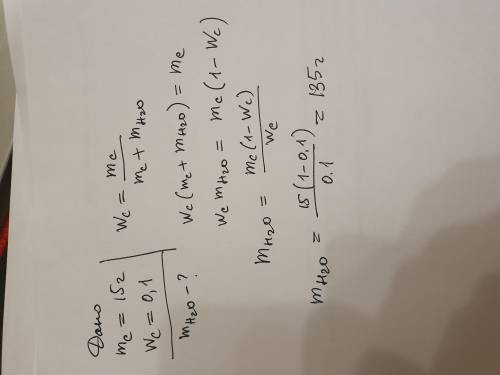 Дано
m_c = 15г
W_c = 0,1
m_H2O - ?
W_c = m_c / (m_c + m_H2O)
W_c (m_c + m_H2O) = m_c
W_c m_H2O = m_c (1 - W_c)
m_H2O = m_c (1 - W_c) / W_c
m_H2O = 15 (1 - 0,1) / 0,1 = 135г